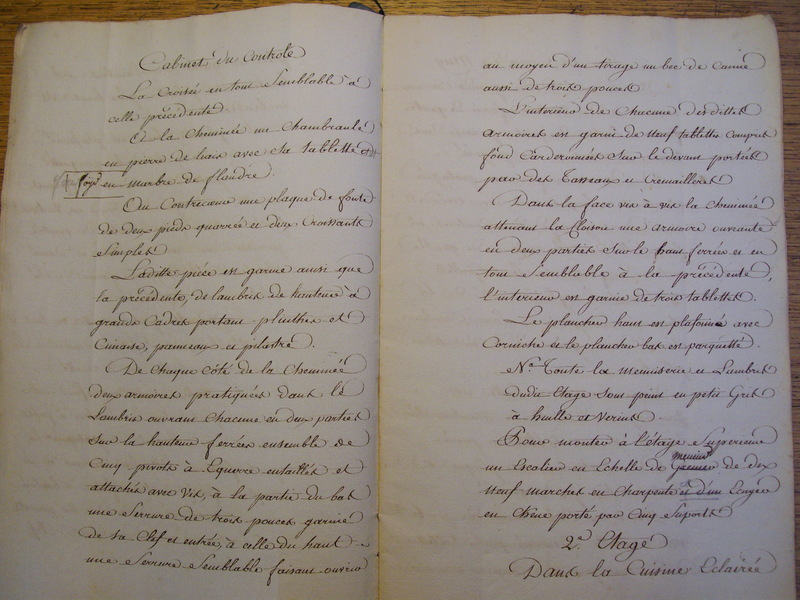 Cabinet du Controle
La Croisée en tout Semblable à
celle précédente
Et la Cheminée un Chambranle
en pierre de liais avec sa tablette et
foyer en marbre de flandre.
Ou Contrecoeur une plaque de fonte
de deux pieds quarrée et deux Croissants
Simples
Laditte pièce est garnie ainsi que
la précédente, de lambris de hauteur à
grands Cadres portant plinthes et
Cimaise, panneaux et pilastre.
De Chaque Côté de la Cheminée
deux armoires pratiquées dans le
Lambris ouvrant Chacune en deux parties
Sur la hauteur ferrées ensemble de
Cinq pivots à Equerre entaillés et
attachés avec Vis, à la partie du bas
une Serrure de trois pouces garnie
de sa Clef et entrée, à celle du haut
une Serrure Semblable faisant ouvrir
au moyen d'un tirage un bec de Canne
aussi de trois pouces
L'interieur de Chacune desdittes
armoires est garnie de neuf tablettes compris
fond Carderonnées Sur le devant portées
par des Tasseaux et Cremailleres
Dans la face vis à vis la cheminée
attenant la Cloison une armoire ouvrante
en deux parties Sur le haut ferrée et en
tout Semblable à la précédente,
l'interieur est garnie de trois tablettes.
Le plancher haut est plafonné avec
Corniche et le plancher bas est parquetté.
Na. Toute la menuiserie et Lambris
dudit Etage sont peint en petit Gris
à huille et Vernis.
Pour monter à l'étage Superieur
un Escalier en Echelle de meunier de dix
neuf marches en Charpente et d'un Ecuyer
en Chêne porté par Cinq Suports
2e. Etage
Dans la Cuisine Eclairée